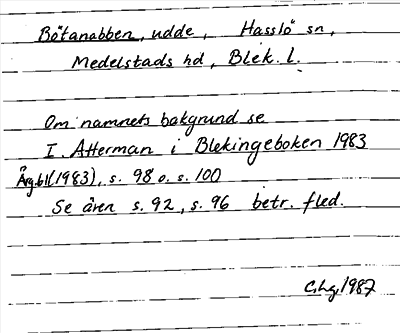 Bötanabben, udde, Hasslö sn,
Medelstads hd, Blek. l.
Om namnets bakgrund se
I. Atterman i Blekingeboken 1983
Årg. 61 (1983), s. 98 o. s. 100
Se även s. 92, s. 96 betr. fled.
1987